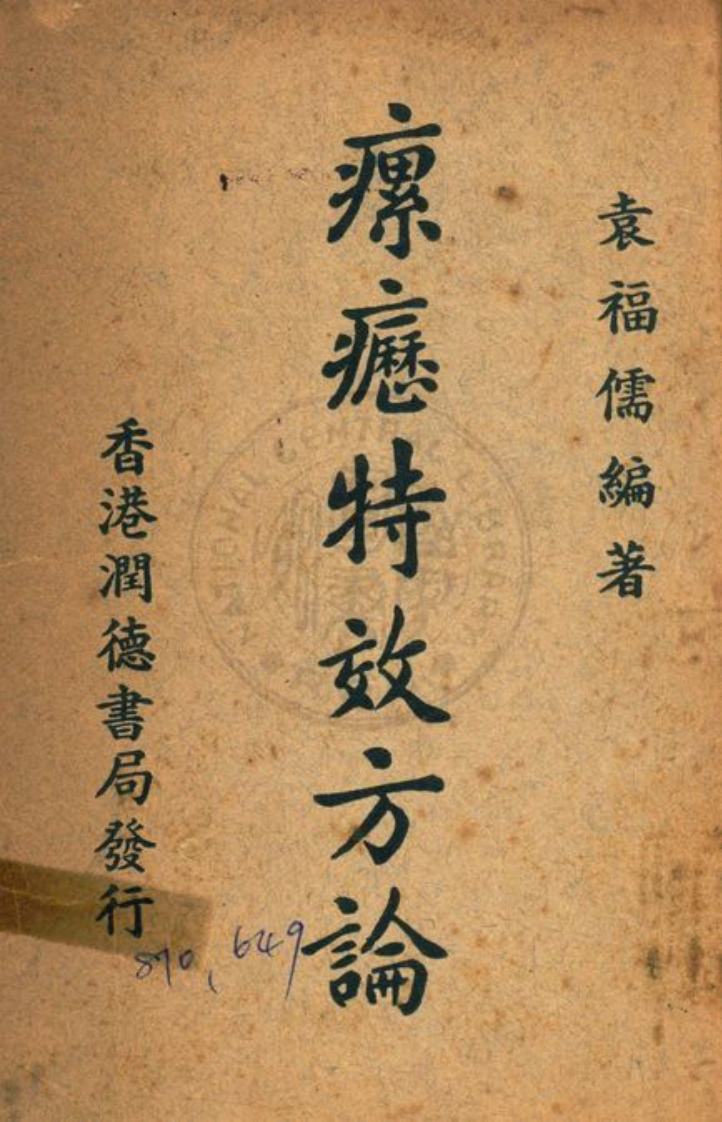 袁福儒編著
瘰癧特效方論
香港潤德書局發行
870,649